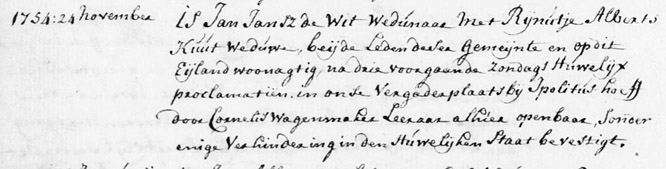 1754: 24 November is Jan Jansz de Wit Wedunaar Met Rijnutje Alberts
Kuut Weduwe, beijde Leden deeser Gemeijnte en op dit
Eijland woonagtig, na drie voorgaande Zondags Huwelijx
proclamatiën, in onse Vergaderplaats bij Ipolitus hoeff
door Cornelis Wagenmaker Leeraar alhier openbaar, Sonder
enige Verhindering in den Huwelijken Staat bevestigt.